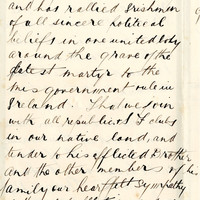 and has rallied Irishmen
of all sincere political
beliefs in one united body
around the grave of the
latest martyr to the
misgovernment rule in
Ireland. That we join
with all republican I. clubs
in our native land, and
tender to his afflicted Brother
and the other members of his
family our heartfelt sympathy